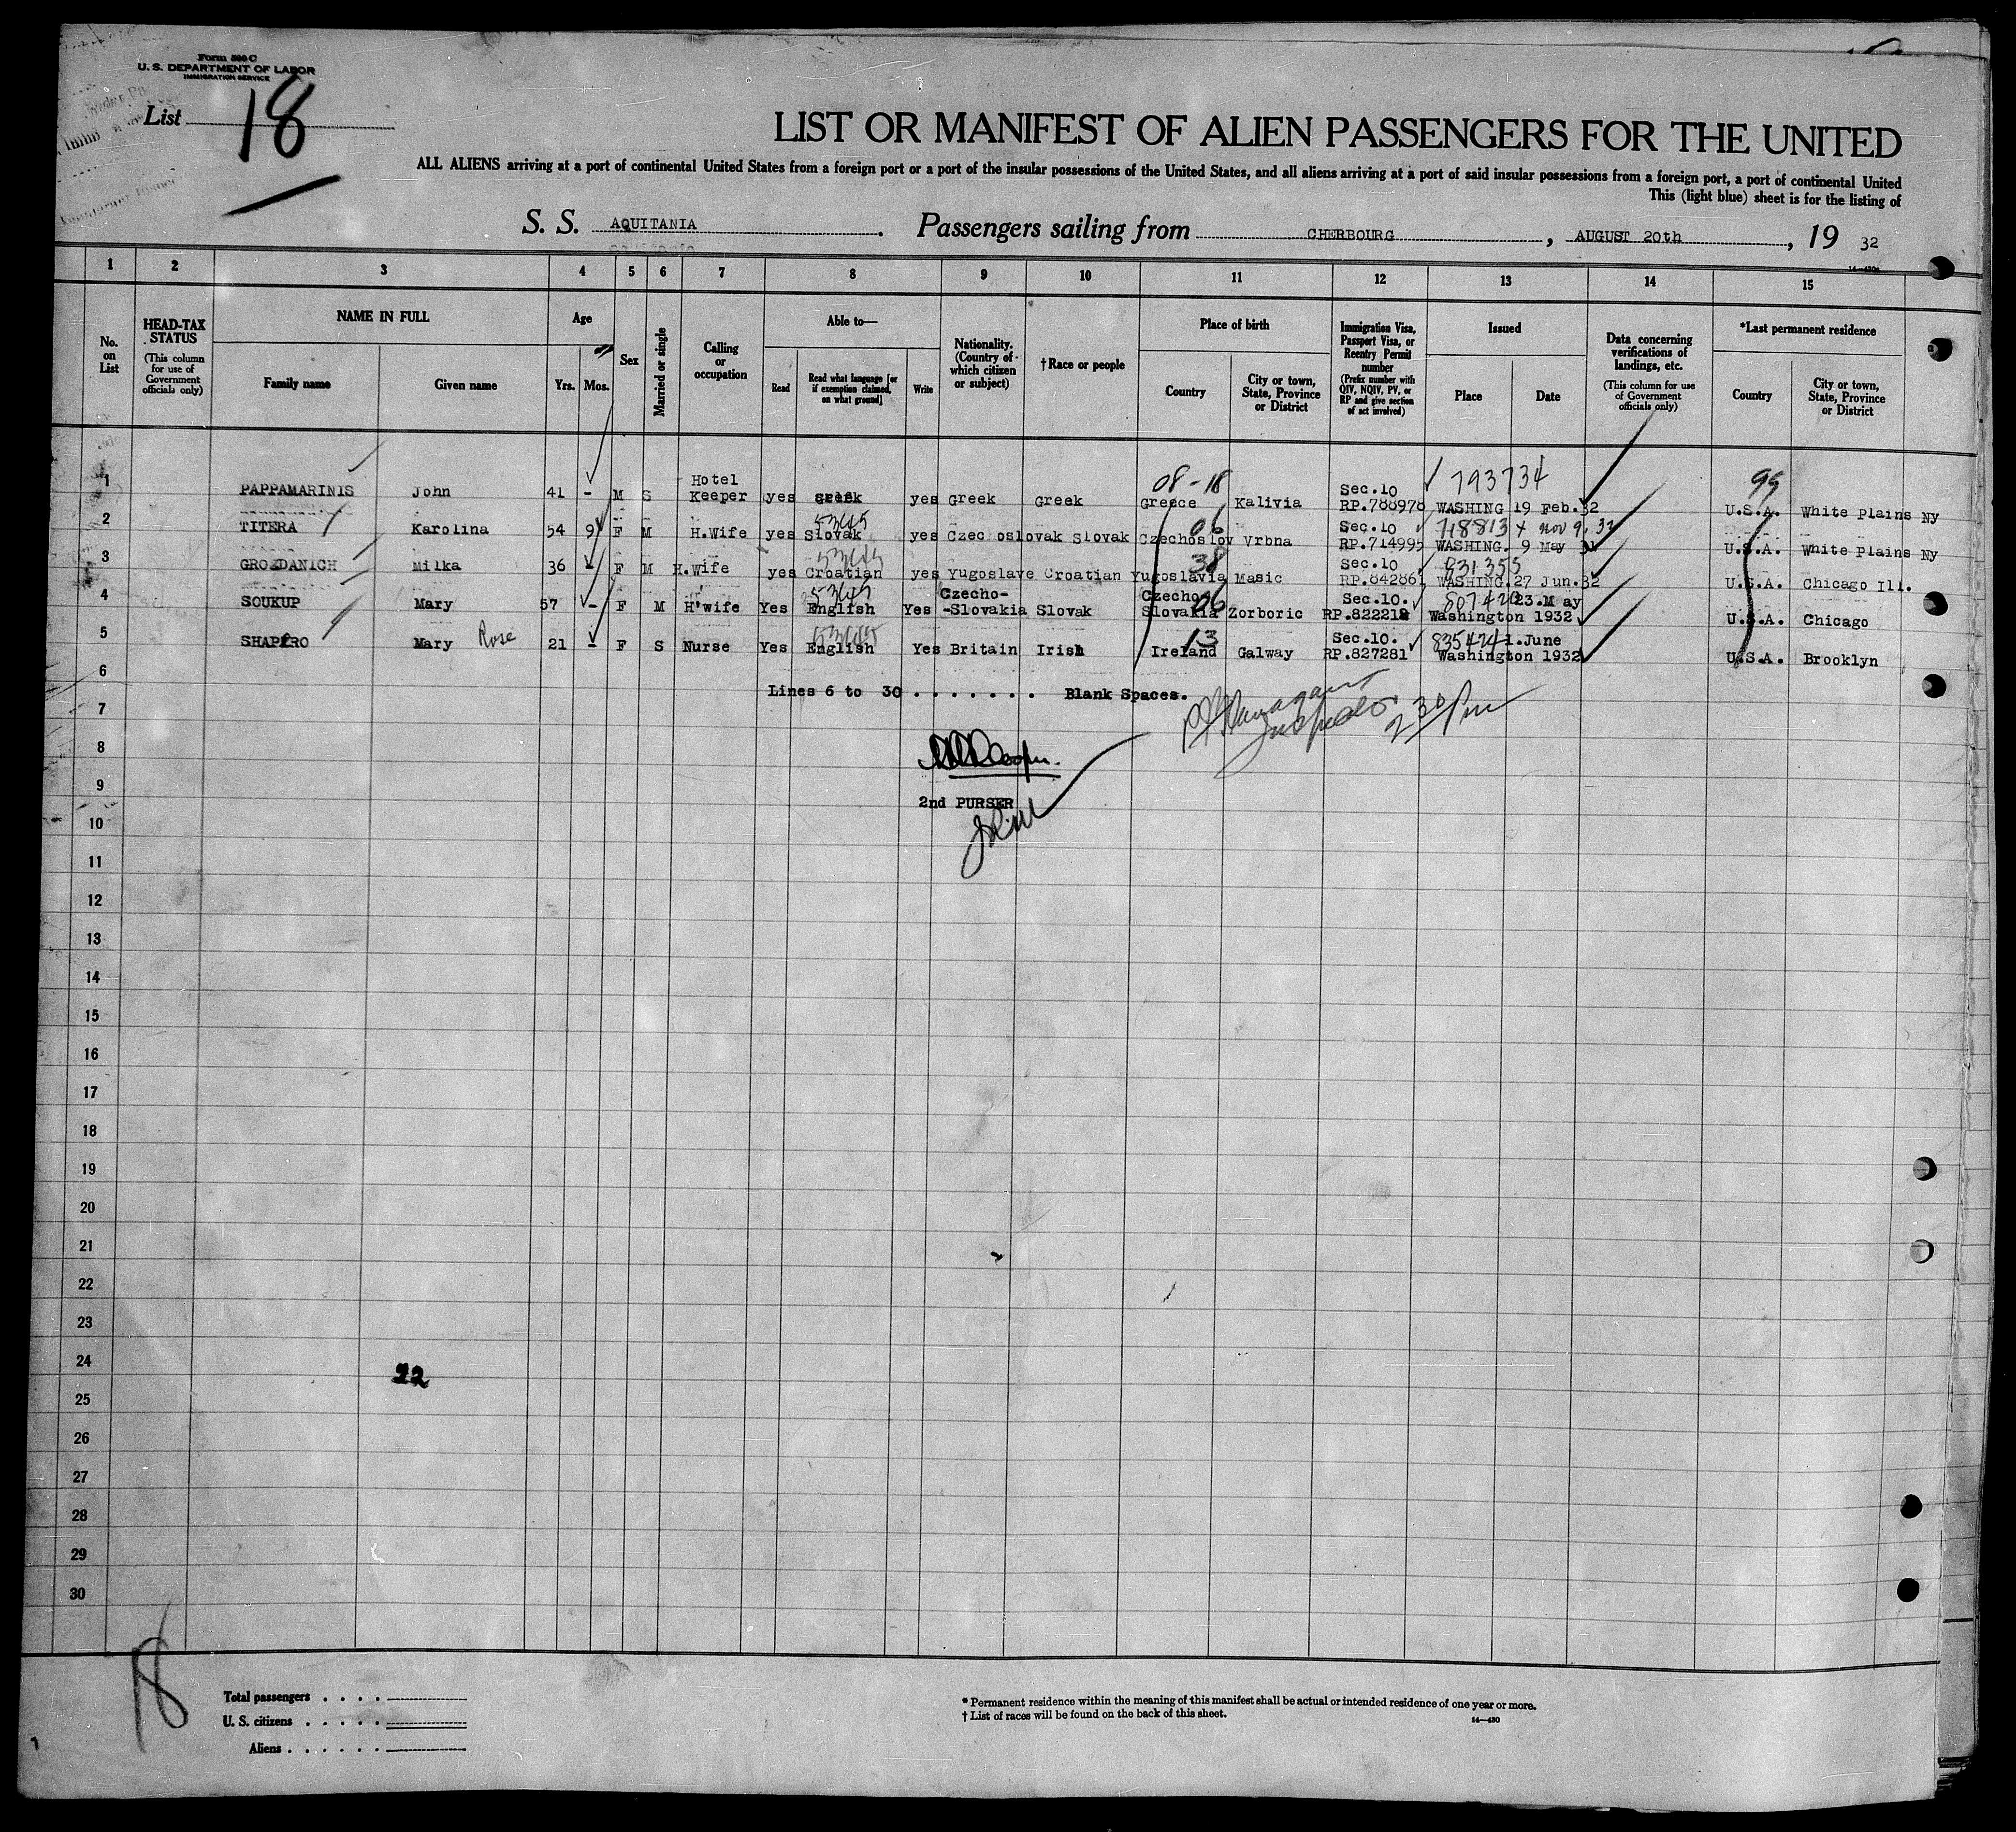 Form 500 C
U. S. DEPARTMENT OF LABOR
IMMIGRATION SERVICE
List 18
LIST OR MANIFEST OF ALIEN PASSENGERS FOR THE UNITED
ALL ALIENS arriving at a port of continental United States from a foreign port or a port of the insular possessions of the United States, and all aliens arriving at a port of said insular possessions from a foreign port, a port of continental United
This (light blue) sheet is for the listing of
S. S. AQUITANIA . Passengers sailing from CHERBOURG , AUGUST 20th , 19 32
1 2 3 4 5 6 7 8 9 10 11 12 13 14 15
No. on List
HEAD-TAX STATUS (This column for use of Government officials only)
NAME IN FULL Family name Given name
Age Yrs. Mos.
Sex
Married or single
Calling or occupation
Able to— Read Read what language [or if exemption claimed, on what ground] Write
Nationality. (Country of which citizen or subject)
† Race or people
Place of birth Country City or town, State, Province or District
Immigration Visa, Passport Visa, or Reentry Permit number (Prefix number with QIV, NQIV, PV, or RP and give section of act involved)
Issued Place Date
Data concerning verifications of landings, etc. (This column for use of Government officials only)
*Last permanent residence Country City or town, State, Province or District
08-18 793734 99
1 PAPPAMARINIS John 41 - M S Hotel Keeper yes Greek yes Greek Greek Greece Kalivia Sec.10 RP.788978 WASHING 19 Feb.32 U.S.A. White Plains Ny
53445 06 Nov 9, 32
2 TITERA Karolina 54 9 F M H.Wife yes Slovak yes Czec oslovak Slovak Czechoslov Vrbna Sec.10 RP.714995 WASHING. 9 May U.S.A. White Plains Ny
38 831355
3 GROZDANICH Milka 36 - F M H.Wife yes Croatian yes Yugoslave Croatian Yugoslavia Masic Sec.10 RP.842861 WASHING 27 Jun.32 U.S.A. Chicago Ill.
06 807420
4 SOUKUP Mary 57 - F M H'wife Yes English Yes Czecho-Slovakia Slovak Czecho Slovakia Zorboric Sec.10. RP.822212 23.May Washington 1932 U.S.A. Chicago
13 835424
5 SHAPIRO Mary Rose 21 - F S Nurse Yes English Yes Britain Irish Ireland Galway Sec.10. RP.827281 1.June Washington 1932 U.S.A. Brooklyn
6 Lines 6 to 30 . . . . . . . Blank Spaces.
7 Inspector 2 30 Pm
8
9 2nd PURSER
10
11
12
13
14
15
16
17
18
19
20
21
22
23
24 22
25
26
27
28
29
30
18
Total passengers . . . .
U. S. citizens . . . . .
Aliens . . . . . .
* Permanent residence within the meaning of this manifest shall be actual or intended residence of one year or more.
† List of races will be found on the back of this sheet.
14—430